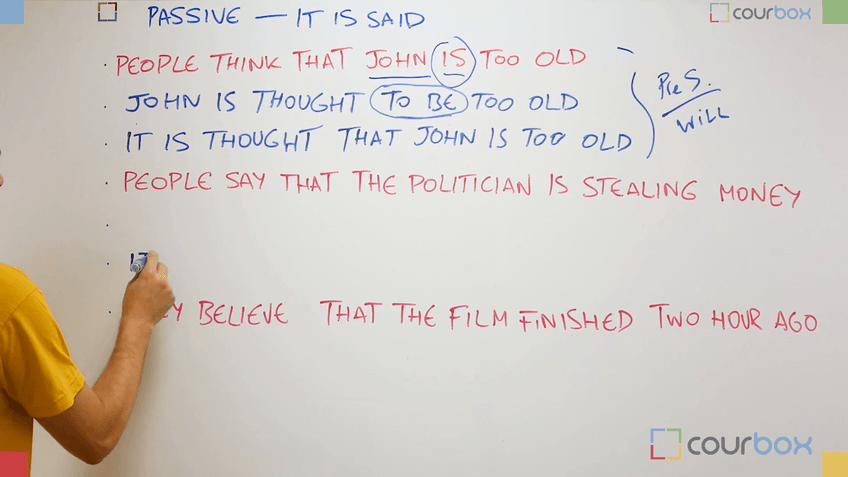 PASSIVE — IT IS SAID
courbox
· PEOPLE THINK THAT JOHN IS TOO OLD
· JOHN IS THOUGHT TO BE TOO OLD
· IT IS THOUGHT THAT JOHN IS TOO OLD
PRES.
WILL
· PEOPLE SAY THAT THE POLITICIAN IS STEALING MONEY
·
· IT
· BELIEVE THAT THE FILM FINISHED TWO HOUR AGO
courbox